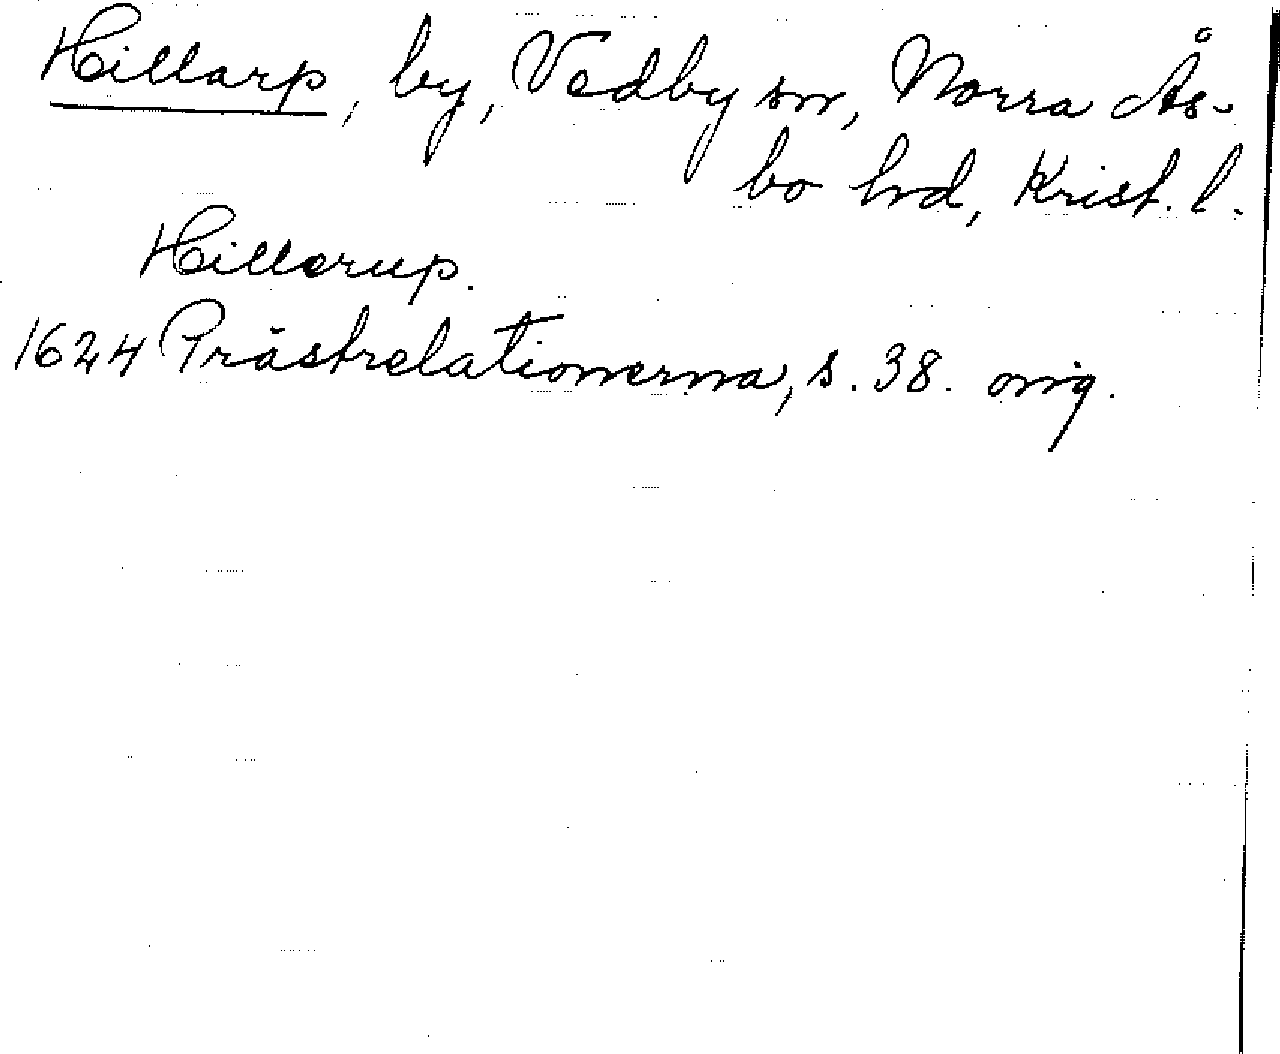 Hillarp, by, Vedby sn, Norra Ås-
bo hd, Krist. l.
Hillerup.
1624 Prästrelationerna, s. 38. orig.